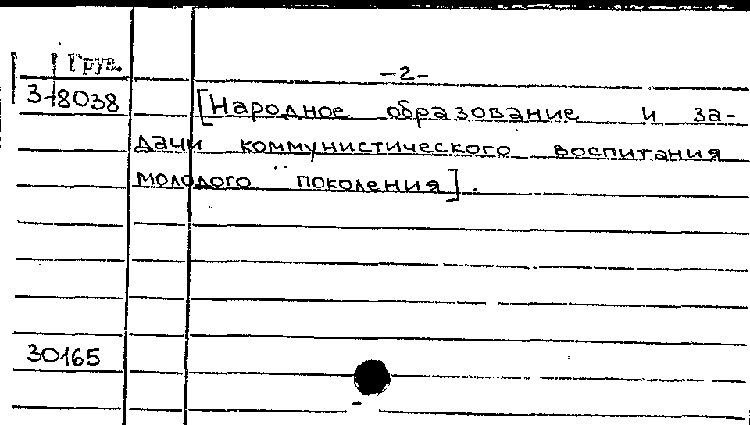 Груз.
-2-
3-18038
[Народное образование и за-
дачи коммунистического воспитания
молодого поколения].
30165